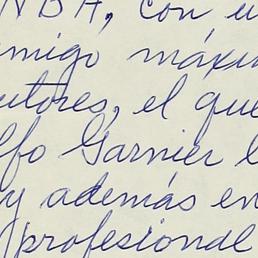 NBA, con u
amigo máxi
utores, el que
lfo Garnier l
y además en
profesional